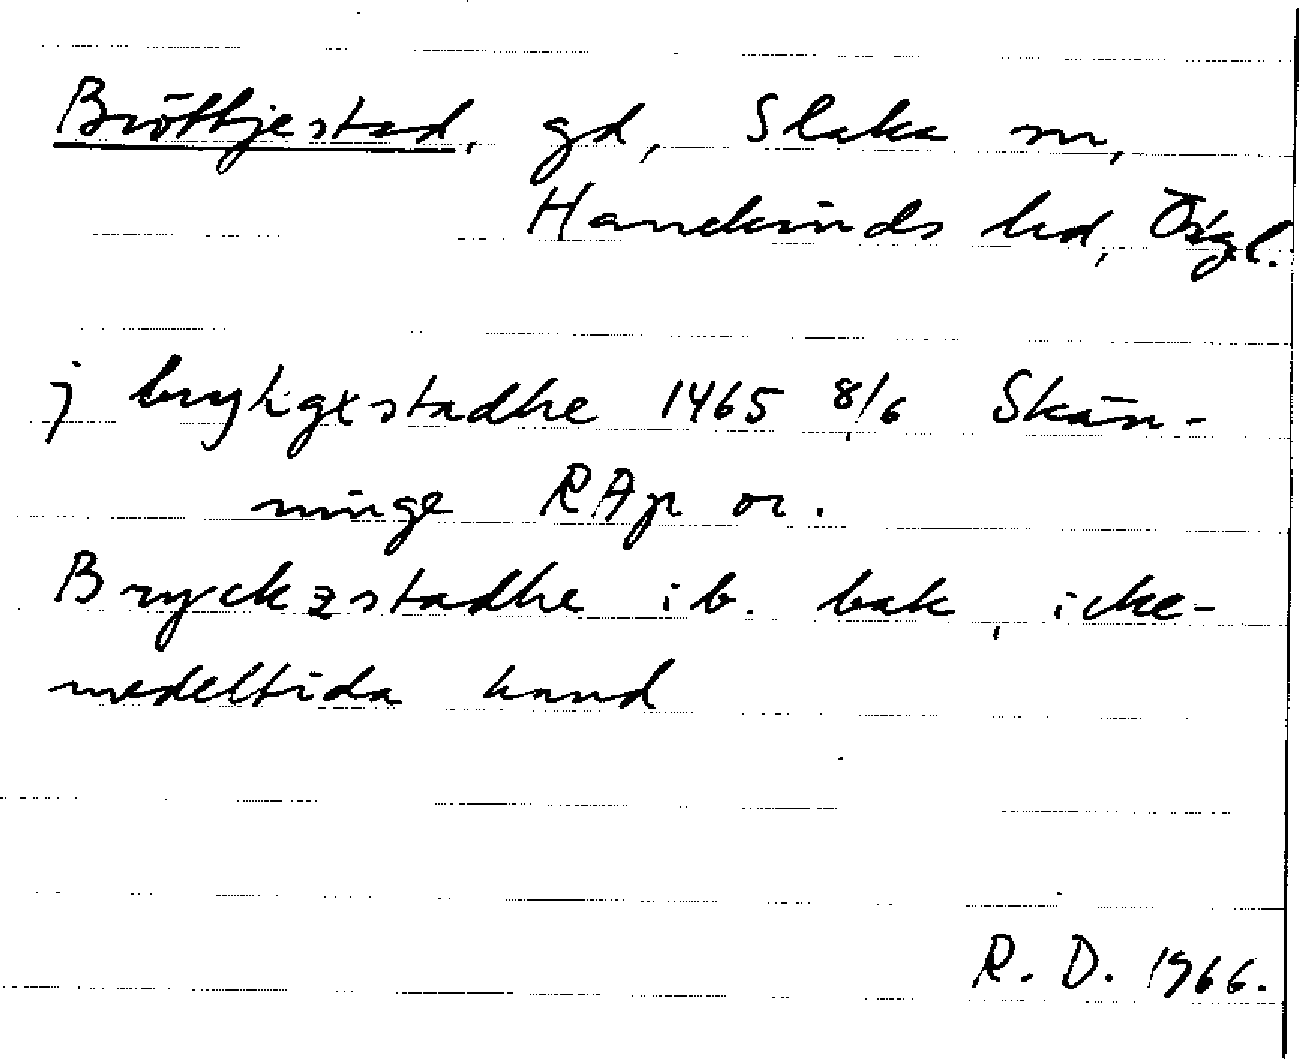 Bröttjestad, gd, Slaka sn,
Hanekinds hd, Ögl.
j brytigxstadhe 1465 8/6 Skän-
ninge RAp or.
Bryckzstadhe ib. bak, icke-
medeltida hand
R. D. 1966.